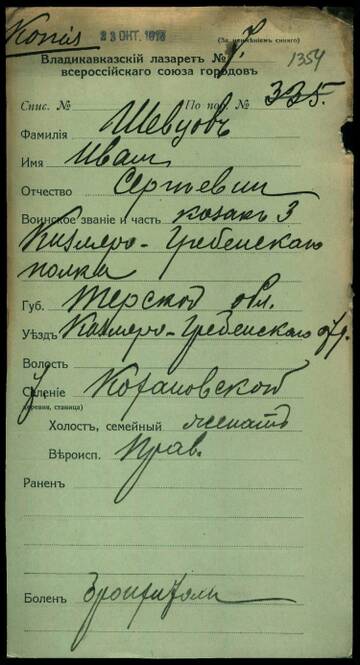 Копія 23 ОКТ. 1916 (За неимѣніем синяго)
Владикавказскій лазаретъ № 7. 1354
всероссійскаго союза городовъ
Спис. № По пол. № 335.
Фамилія Шевцовъ
Имя Иван
Отчество Сергѣевич
Воинское званіе и часть казакъ 3
Кизляро-Гребенскаго
полка
Губ. Терской обл.
Уѣздъ Кизляро-Гребенскаго
Волость
Селеніе
(деревня, станица)
Холостъ, семейный женатъ
Вѣроисп. Прав.
Раненъ
Боленъ